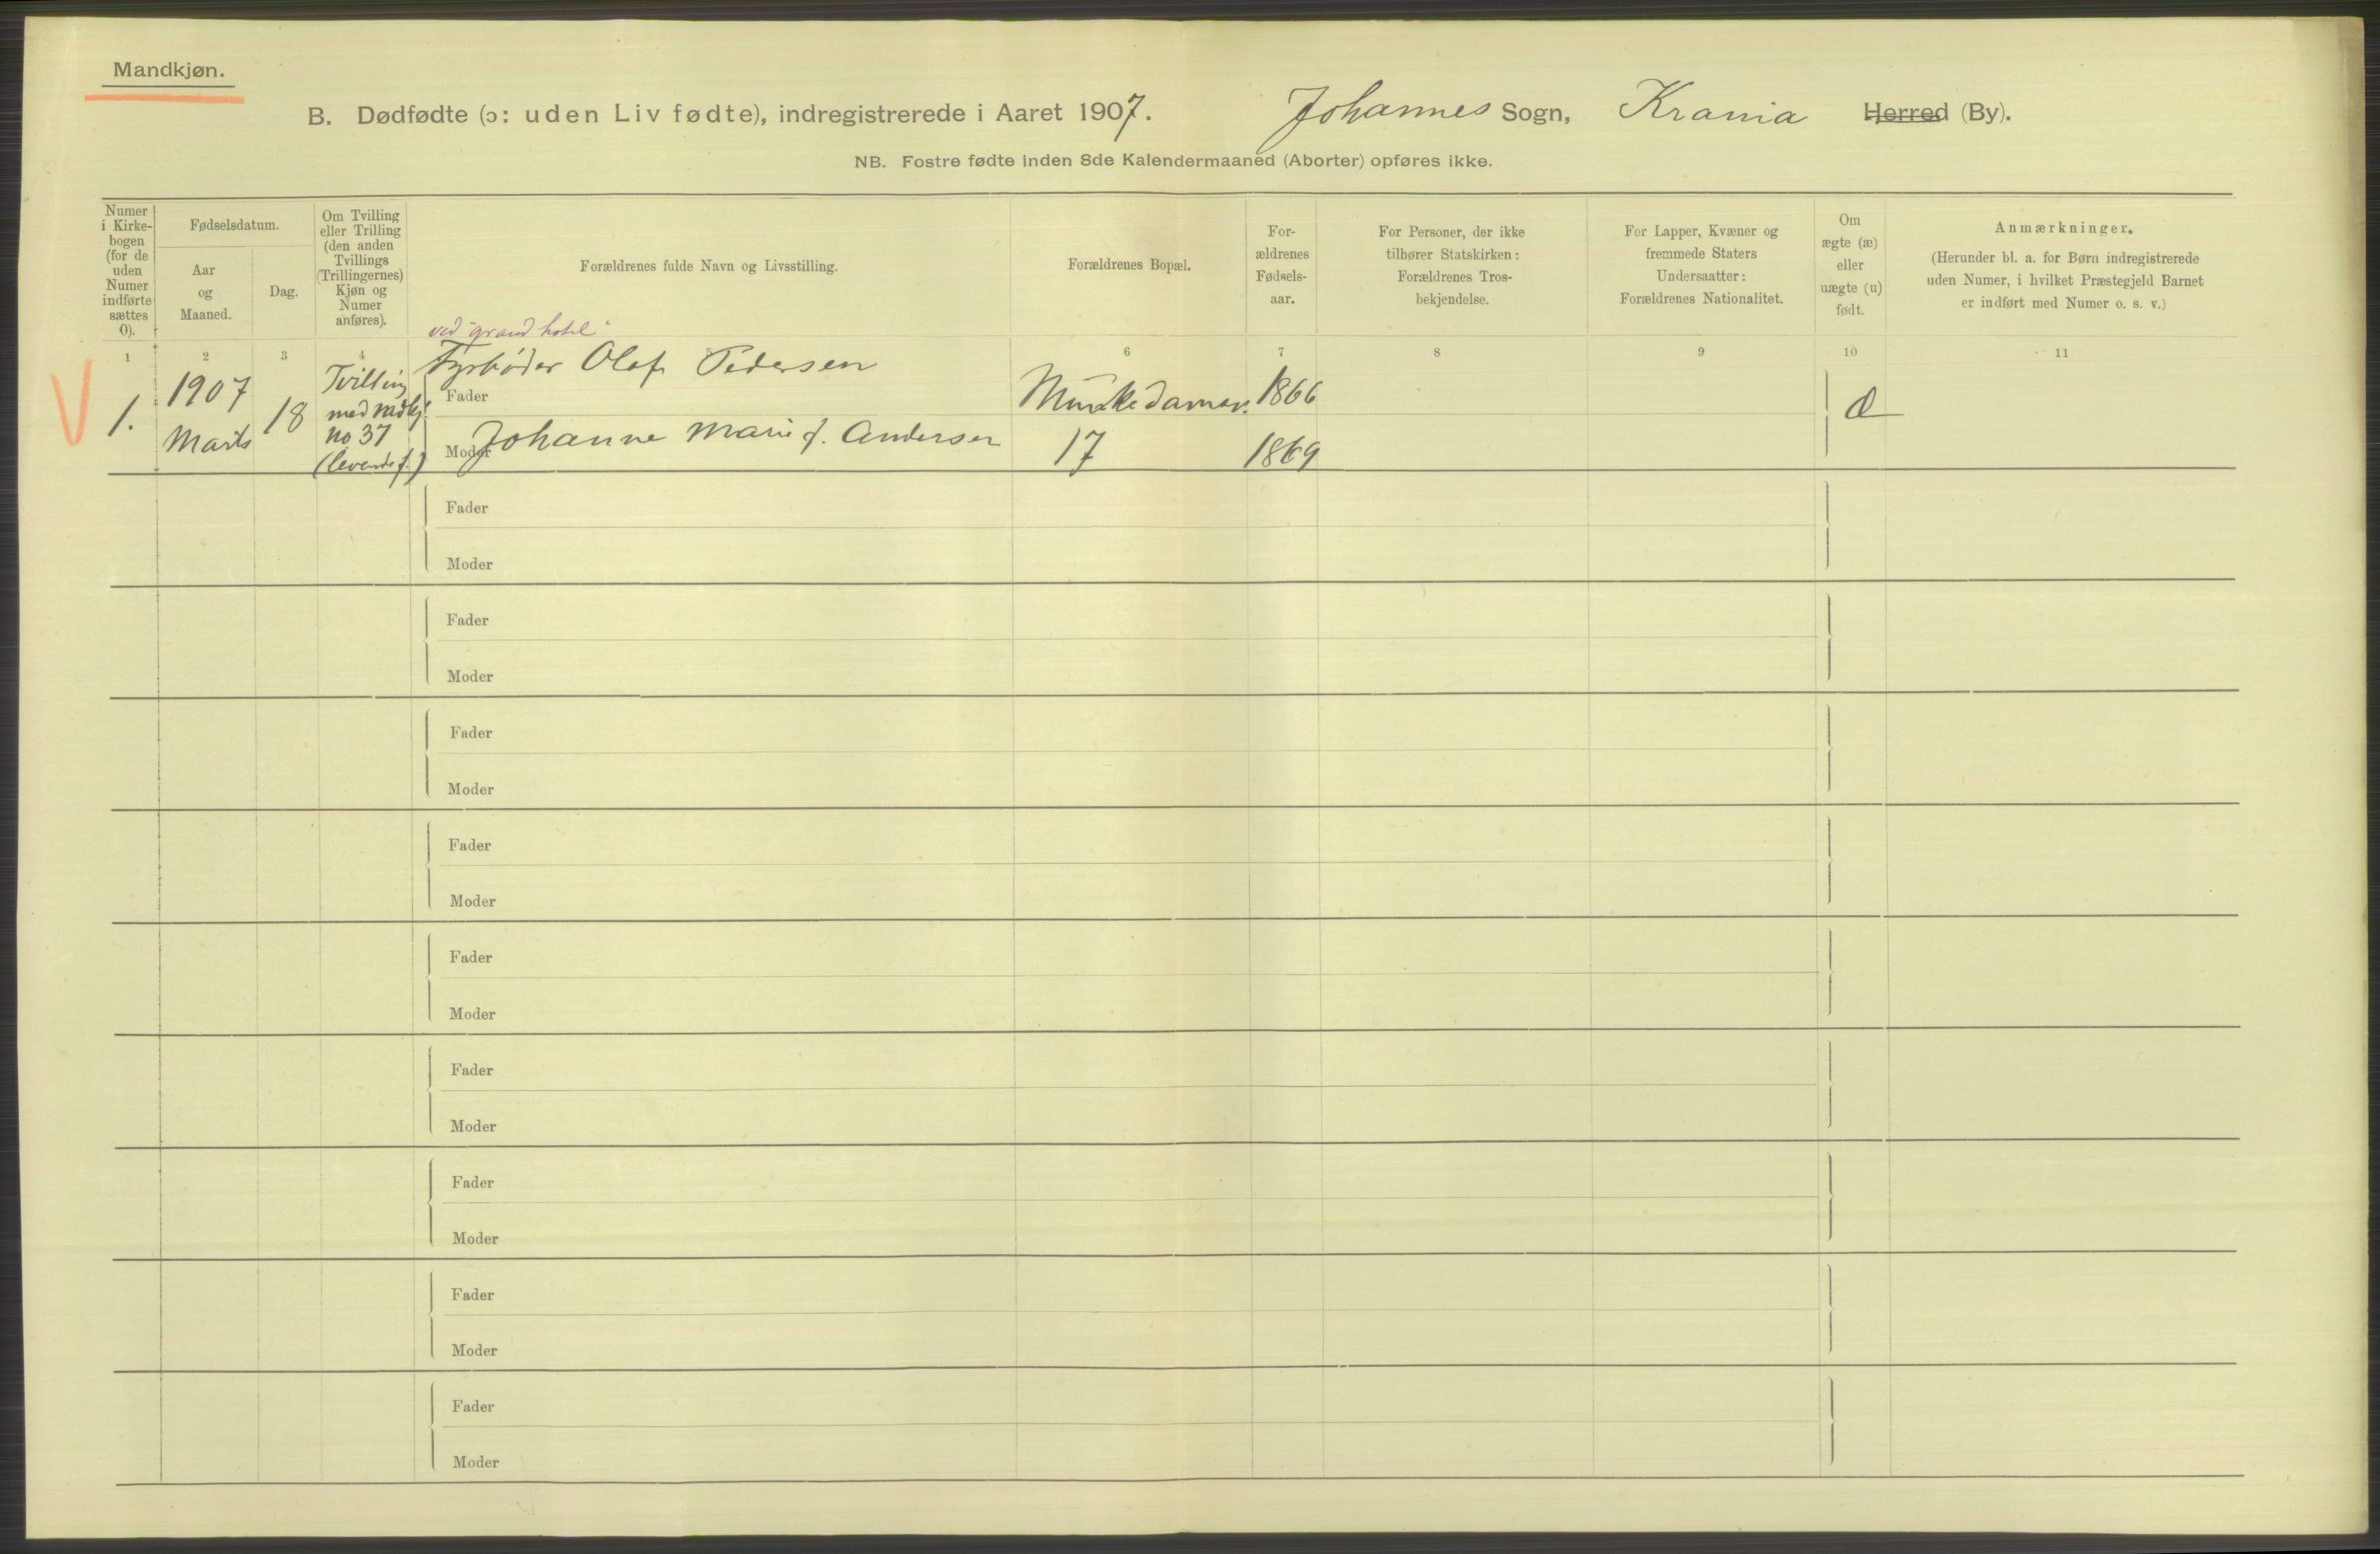 Mandkjøn.
B. Dødfødte (ɔ: uden Liv fødte), indregistrerede i Aaret 1907. Johannes Sogn, Krania Herred (By).
NB. Fostre fødte inden 8de Kalendermaaned (Aborter) opføres ikke.
Numer i Kirke-
bogen
(for de
uden
Numer
indførte
sættes
0).
Fødselsdatum.
Aar
og
Maaned.
Dag.
Om Tvilling
eller Trilling
(den anden
Tvillings
(Trillingernes)
Kjøn og
Numer
anføres).
Forældrenes fulde Navn og Livsstilling.
Forældrenes Bopæl.
For-
ældrenes
Fødsels-
aar.
For Personer, der ikke
tilhører Statskirken:
Forældrenes Tros-
bekjendelse.
For Lapper, Kvæner og
fremmede Staters
Undersaatter:
Forældrenes Nationalitet.
Om
ægte (æ)
eller
uægte (u)
født.
Anmærkninger.
(Herunder bl. a. for Børn indregistrerede
uden Numer, i hvilket Præstegjeld Barnet
er indført med Numer o. s. v.)
1 2 3 4 5 6 7 8 9 10 11
V
1.
1907
Marts
18
Tvilling
med mdkj.
no 37
(levende f.)
ved "grand hotel"
Fyrbøder Olaf Pedersen
Fader
Moder Johanne Marie f. Andersen
Munkedamsv.
17
1866
1869
æ
Fader
Moder
Fader
Moder
Fader
Moder
Fader
Moder
Fader
Moder
Fader
Moder
Fader
Moder
Fader
Moder
Fader
Moder